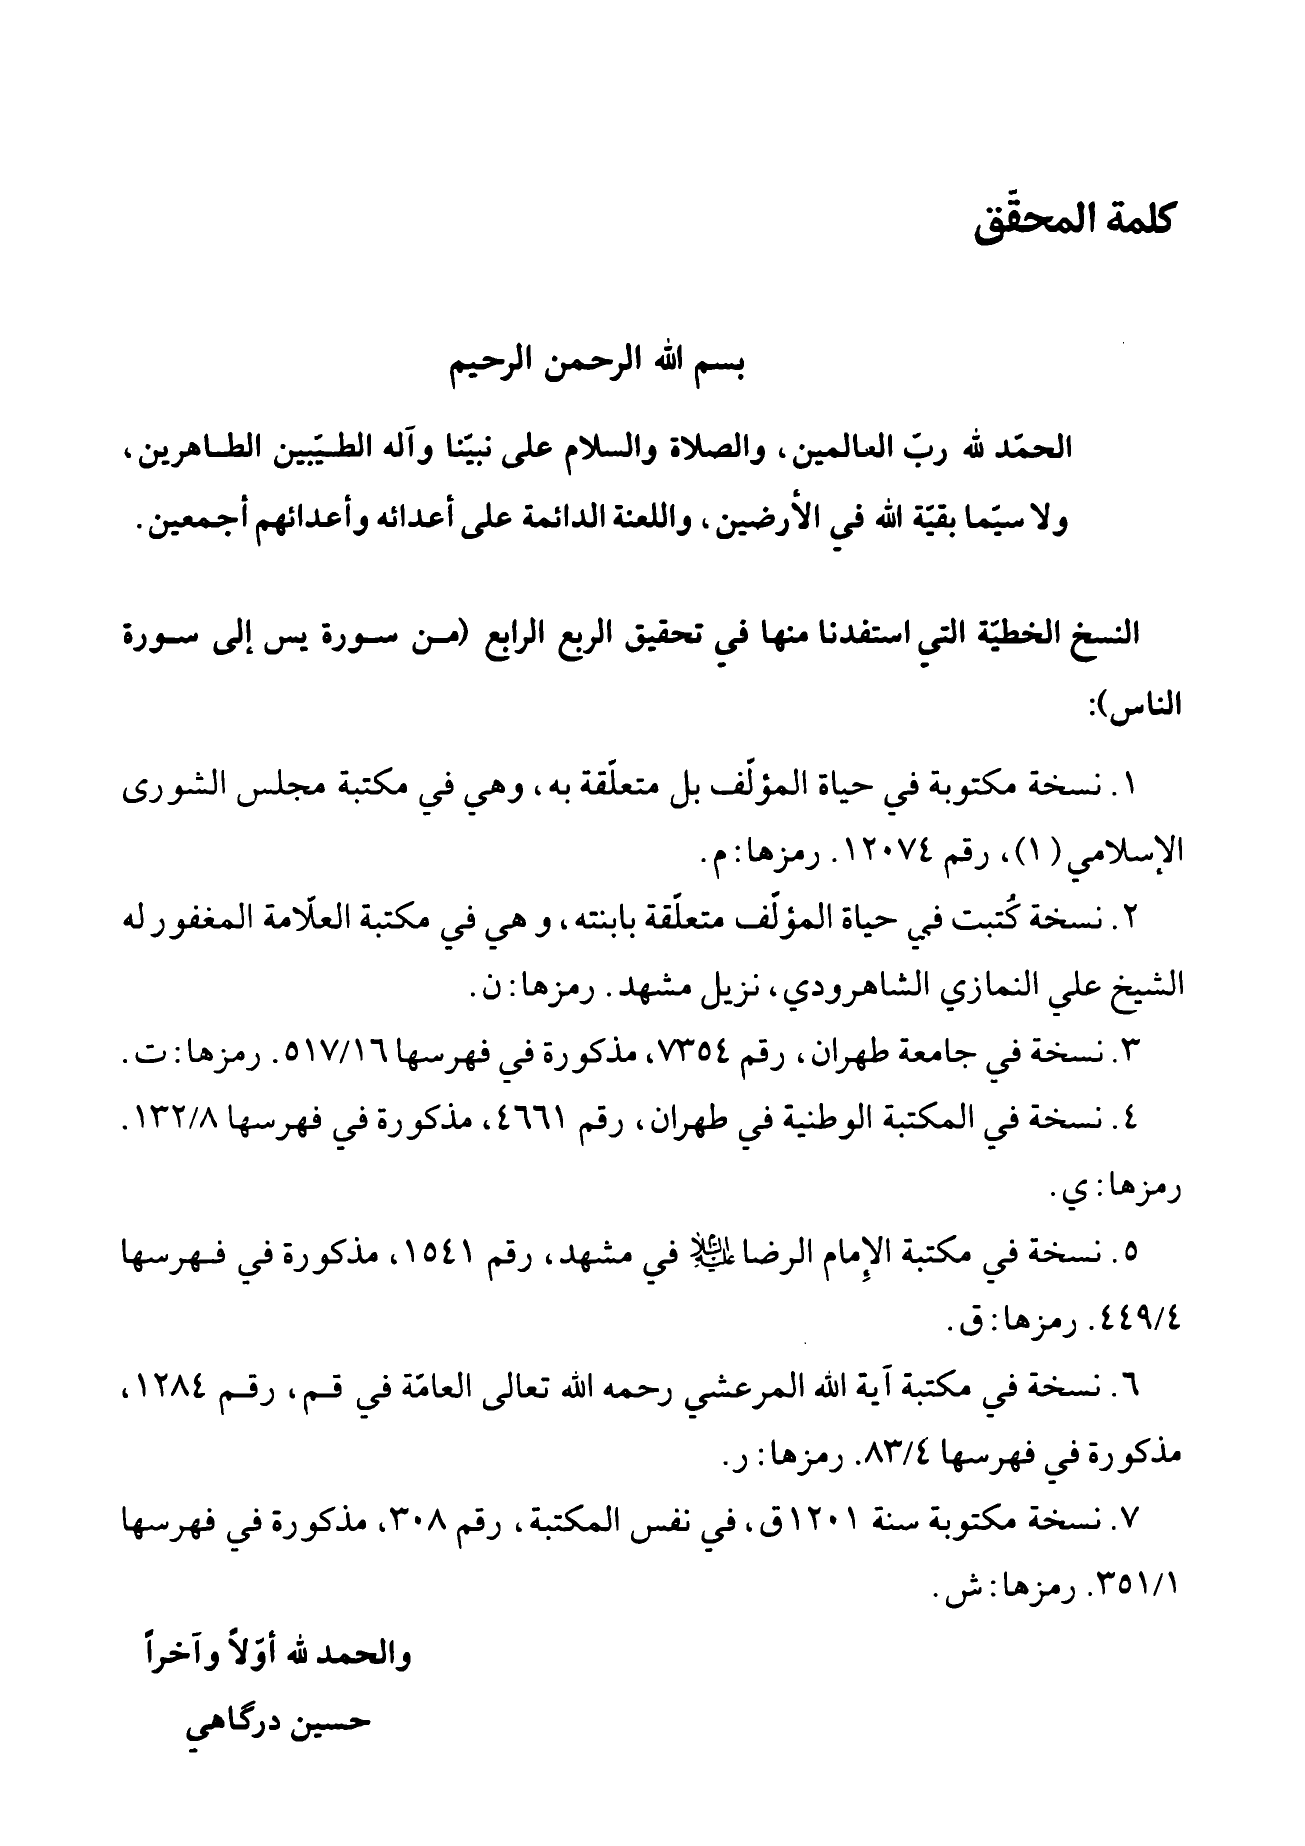 كلمة المحقّق
بسم الله الرحمن الرحيم
الحمّد لله ربّ العالمين، والصلاة والسلام على نبيّنا وآله الطيّبين الطاهرين،
ولا سيّما بقيّة الله في الأرضين، واللعنة الدائمة على أعدائه وأعدائهم أجمعين.
النسخ الخطيّة التي استفدنا منها في تحقيق الربع الرابع (من سورة يس إلى سورة
الناس):
١. نسخة مكتوبة في حياة المؤلّف بل متعلّقة به، وهي في مكتبة مجلس الشورى
الإسلامي (١)، رقم ١٢٠٧٤. رمزها: م.
٢. نسخة كُتبت في حياة المؤلّف متعلّقة بابنته، و هي في مكتبة العلّامة المغفور له
الشيخ علي النمازي الشاهرودي، نزيل مشهد. رمزها: ن.
٣. نسخة في جامعة طهران، رقم ٧٣٥٤، مذكورة في فهرسها ٥١٧/١٦. رمزها: ت.
٤. نسخة في المكتبة الوطنية في طهران، رقم ٤٦٦١، مذكورة في فهرسها ١٣٢/٨.
رمزها: ي.
٥. نسخة في مكتبة الإمام الرضا عليه السلام في مشهد، رقم ١٥٤١، مذكورة في فهرسها
٤٤٩/٤. رمزها: ق.
٦. نسخة في مكتبة آية الله المرعشي رحمه الله تعالى العامّة في قم، رقم ١٢٨٤،
مذكورة في فهرسها ٨٣/٤. رمزها: ر.
٧. نسخة مكتوبة سنة ١٢٠١ق، في نفس المكتبة، رقم ٣٠٨، مذكورة في فهرسها
٣٥١/١. رمزها: ش.
والحمد لله أوّلاً وآخراً
حسين درگاهي